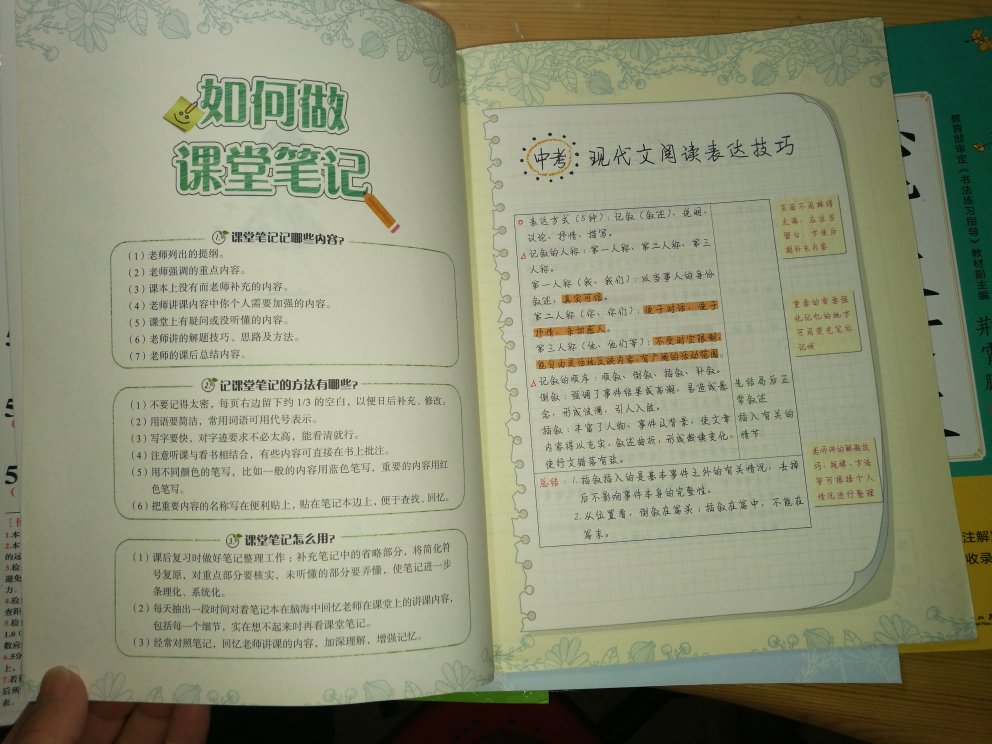 如何做
课堂笔记
1. 课堂笔记记哪些内容?
(1)老师列出的提纲。
(2)老师强调的重点内容。
(3)课本上没有而老师补充的内容。
(4)老师讲课内容中你个人需要加强的内容。
(5)课堂上有疑问或没听懂的内容。
(6)老师讲的解题技巧、思路及方法。
(7)老师的课后总结内容。
2. 记课堂笔记的方法有哪些?
(1)不要记得太密,每页右边留下约 1/3 的空白,以便日后补充、修改。
(2)用语要简洁,常用词语可用代号表示。
(3)写字要快,对字迹要求不必太高,能看清就行。
(4)注意听课与看书相结合,有些内容可直接在书上批注。
(5)用不同颜色的笔写,比如一般的内容用蓝色笔写,重要的内容用红
色笔写。
(6)把重要内容的名称写在便利贴上,贴在笔记本边上,便于查找、回忆。
3. 课堂笔记怎么用?
(1)课后复习时做好笔记整理工作:补充笔记中的省略部分,将简化符
号复原,对重点部分要核实,未听懂的部分要弄懂,使笔记进一步
条理化、系统化。
(2)每天抽出一段时间对着笔记本在脑海中回忆老师在课堂上的讲课内容,
包括每一个细节,实在想不起来时再看课堂笔记。
(3)经常对照笔记,回忆老师讲课的内容,加深理解,增强记忆。
中考 现代文阅读表达技巧
表达方式(5种):记叙(叙述)、说明、
议论、抒情、描写。
记叙的人称:第一人称、第二人称、第三
人称。
第一人称(我、我们):以当事人的身份
叙述,真实可信。
第二人称(你、你们):便于对话,便于
抒情,亲切感人。
第三人称(他、他们等):不受时空限制,
能自由灵活地反映内容,有广阔的活动范围。
记叙的顺序:顺叙、倒叙、插叙、补叙。
倒叙:强调了事件结果或高潮,易造成悬
念,形成波澜,引人入胜。
插叙:丰富了人物、事件及背景,使文章
内容得以充实,叙述曲折,形成断续变化,
使行文错落有致。
先结局后正
常叙述
插入有关的
情节
总结:1.插叙插入的是基本事件之外的有关情况,去掉
后不影响事件本身的完整性。
2.从位置看,倒叙在篇头;插叙在篇中,不能在
篇末。
页面不用排得
太满,应适当
留白,方便后
期补充内容
重要的需要强
化记忆的地方
可用荧光笔标
记哦
老师讲的解题技
巧、规律、方法
等可根据个人
情况进行整理
教育部审定《书法练习指导》教材副主编
注解
收录